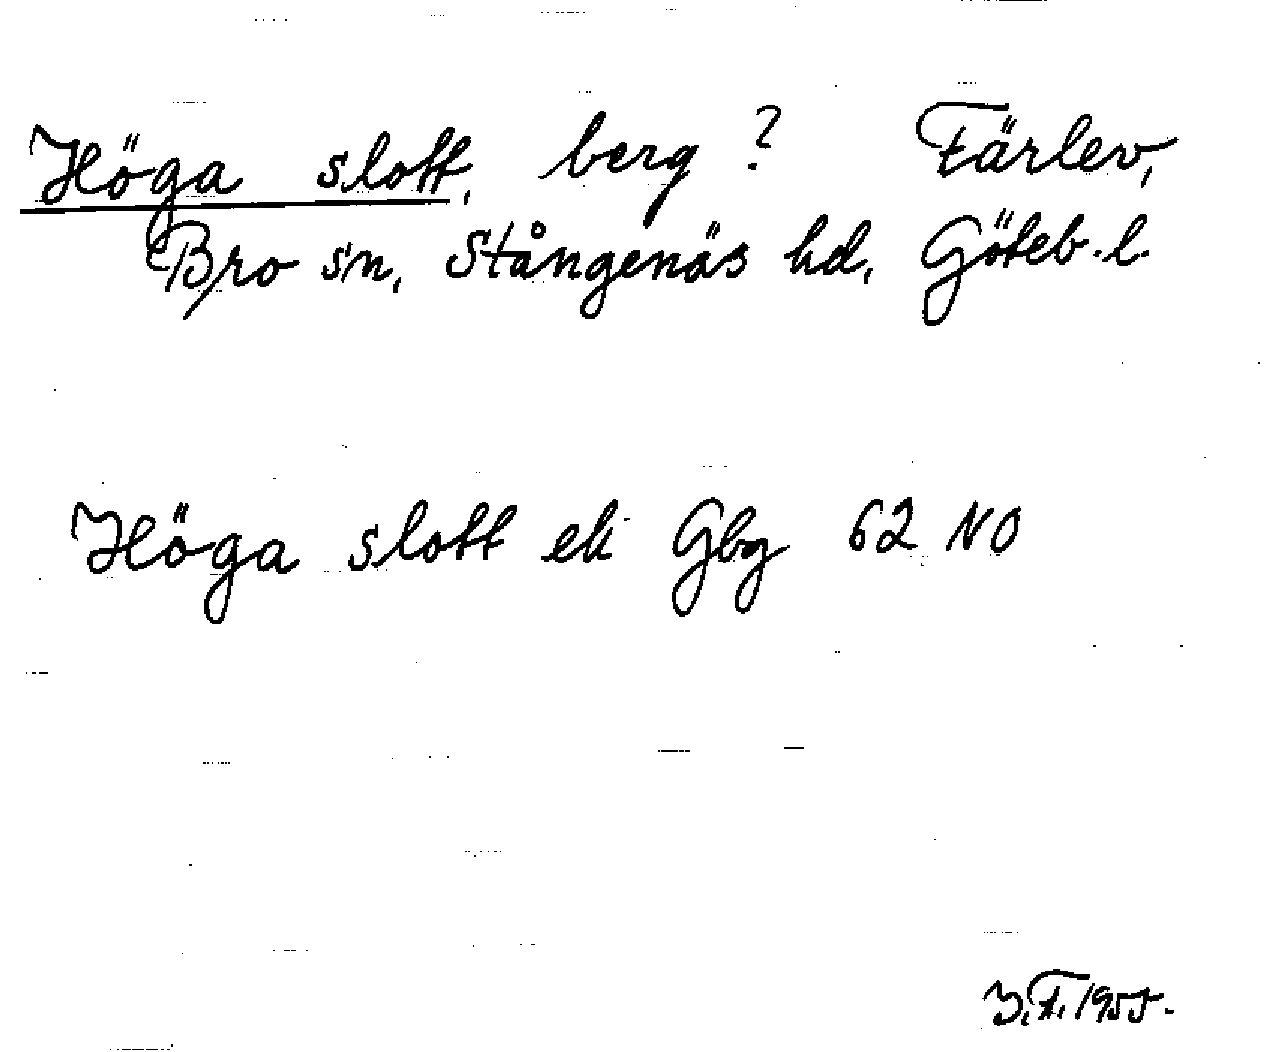 Höga slott, berg? Färlev,
Bro sn, Stångenäs hd, Göteb. l.
Höga slott ek Gbg 62 NO
1955.